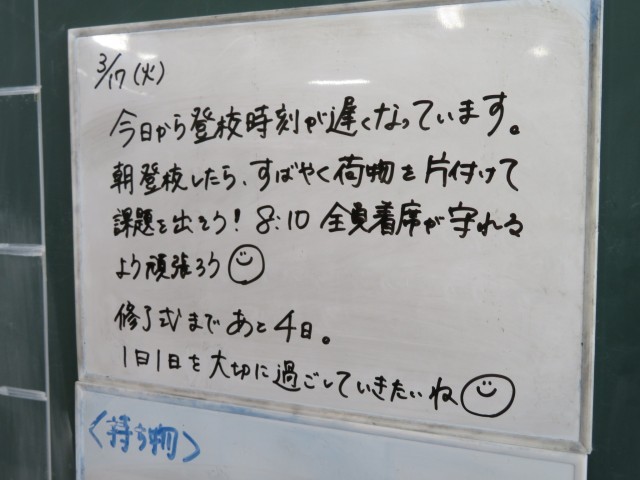 3/17(火)
今日から登校時刻が遅くなっています。
朝登校したら、すばやく荷物を片付けて
課題を出そう!8:10 全員着席が守れる
よう頑張ろう
修了式まであと4日。
1日1日を大切に過ごしていきたいね
<持ち物>